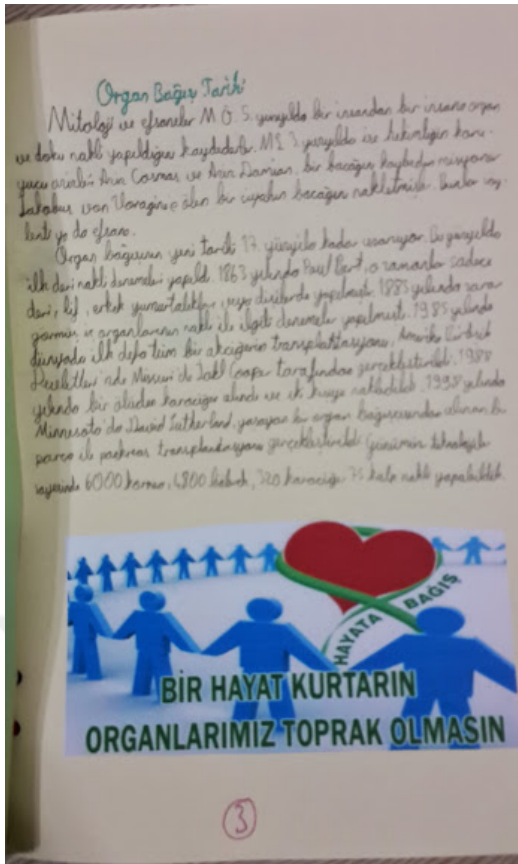 Organ Bağış Tarihi
Mitoloji ve efsaneler M.Ö. 5. yüzyılda bir insandan bir insana organ
ve doku nakli yapıldığını kaydederler. MS 3. yüzyılda ise hekimliğin koru-
yucu azizleri Aziz Cosmas ve Aziz Damian, bir bacağını kaybeden misyoner
Jakobus von Voragine ölen bir bacağını nakletmişler. Bunlar söy-
lenti ya da efsane.
Organ bağışının yeni tarihi 17. yüzyıla kadar uzanıyor. Bu yüzyılda
ilk deri nakli denemeleri yapıldı. 1863 yılında Paul Bert, o zamanlar sadece
deri, lif, erkek yumurtalıklar, veya dizilerde yapılmıştı. 1883 yılında zarar
görmüş iç organlarının nakli ile ilgili denemeler yapılmıştı. 1985 yılında
dünyada ilk defa tüm bir akciğerin transplantasyonu, Amerika Birleşik
Devletleri'nde Missouri'de Joel Cooper tarafından gerçekleştirildi. 1988
yılında bir ölüden karaciğer alındı ve iki kişiye nakledildi. 1998 yılında
Minnesota'da David Sutherland, yaşayan bir organ bağışçısından alınan bir
parça ile pankreas transplantasyonu gerçekleştirildi. Günümüz teknolojisi
sayesinde 6000 kornea, 4800 böbrek, 320 karaciğer 75 kalp nakli yapılabildi.
HAYATA BAĞIŞ
BİR HAYAT KURTARIN
ORGANLARIMIZ TOPRAK OLMASIN
3